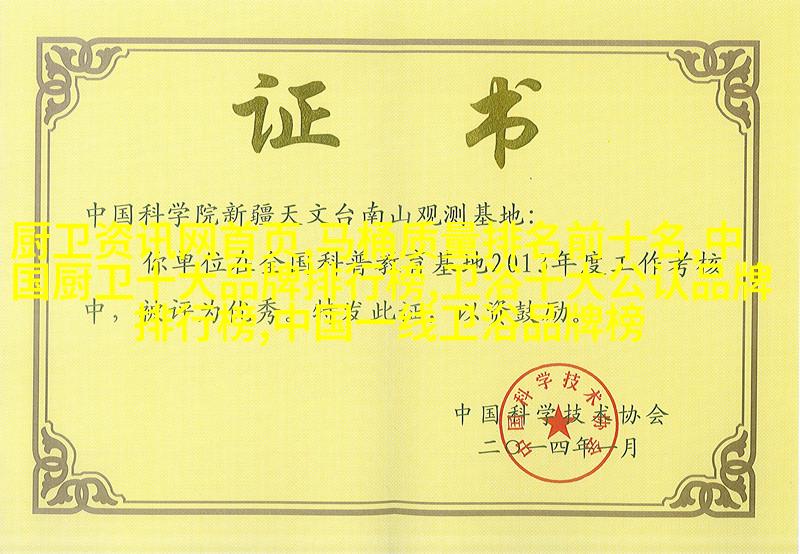 证书
中国科学院新疆天文台南山观测基地:
厨卫资讯网首页,马桶质量排名前十名,中
你单位在全国科普教育基地2013年度工作考核
国厨卫十大品牌排行榜,卫浴十大公认品牌
中，被评为优秀。特发此证，以资鼓励。
排行榜,中国一线卫浴品牌榜
中国科学技术协会
二〇一四年一月
中国科学技术协会